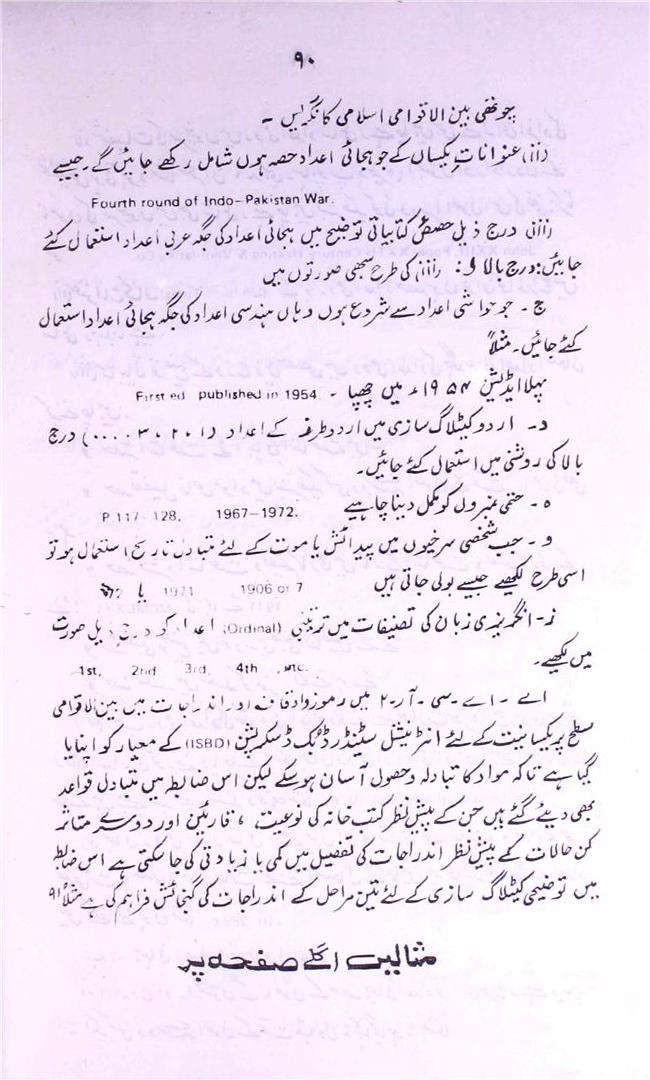 ۹۰
چوتھی بین الاقوامی اسلامی کانگریس ۔
(ii) عنوانات یکساں کے جو ہجائی اعداد حصہ ہوں شامل رکھے جائیں گے۔ جیسے
Fourth round of Indo-Pakistan War.
(iii) درج ذیل حصص کتابیاتی توضیح میں ہجائی اعداد کی جگہ عربی اعداد استعمال کئے
جائیں: درج بالا و: (iii) کی طرح سبھی صورتوں میں
ج ۔ جو حواشی اعداد سے شروع ہوں وہاں ہندسی اعداد کی جگہ ہجائی اعداد استعمال
کئے جائیں۔ مثلاً
پہلا ایڈیشن ۱۹۵۴ء میں چھپا ۔ First ed published in 1954
د۔ اردو کیٹلاگ سازی میں اردو طرفہ کے اعداد (۱، ۲، ۳، ۰....) درج
بالا کی روشنی میں استعمال کئے جائیں۔
ہ ۔ حتمی نمبروں کو مکمل دینا چاہیے P.117-128, 1967-1972.
و ۔ جب شخصی سرخیوں میں پیدائش یا موت کے لئے متبادل تاریخ استعمال ہو تو
اسی طرح لکھیے جیسے بولی جاتی ہیں 1906 or 7 1971 یا 72
ز۔ انگریزی زبان کی تصنیفات میں ترتیبی (Ordinal) اعداد کو درج ذیل صورت
میں لکھیے۔ 1st, 2nd 3rd, 4th , etc.
اے ۔ اے ۔ سی ۔ آر ۔ ۲ میں رموز اوقاف اور اندراجات میں بین الاقوامی
سطح پر یکسانیت کے لئے انٹرنیشنل سٹنڈرڈ بک ڈسکرپشن (ISBD) کے معیار کو اپنایا
گیا ہے تاکہ مواد کا تبادلہ و حصول آسان ہو سکے لیکن اس ضابطہ میں متبادل قواعد
بھی دیئے گئے ہیں جن کے پیش نظر کتب خانہ کی نوعیت ، قارئین اور دوسرے متاثر
کن حالات کے پیش نظر اندراجات کی تفصیل میں کمی یا زیادتی کی جا سکتی ہے اس ضابطہ
میں توضیحی کیٹلاگ سازی کے لئے تین مراحل کے اندراجات کی گنجائش فراہم کی ہے مثلاً ۹۱
مثالیں اگلے صفحہ پر